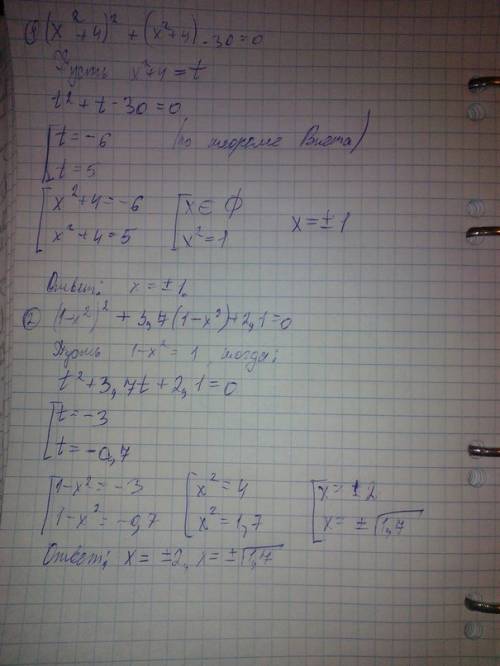 ① (x²+4)² + (x²+4) - 30 = 0
Пусть x²+4 = t
t² + t - 30 = 0
[ t = -6 (по теореме Виета)
[ t = 5
[ x²+4 = -6 [ x ∈ ф
[ x²+4 = 5 [ x² = 1 x = ±1
Ответ: x = ±1.
② (1-x²)² + 3,7(1-x²) + 2,1 = 0
Пусть 1-x² = 1, тогда:
t² + 3,7t + 2,1 = 0
[ t = -3
[ t = -0,7
[ 1-x² = -3 [ x² = 4 [ x = ±2
[ 1-x² = -0,7 [ x² = 1,7 [ x = ±√1,7
Ответ: x = ±2, x = ±√1,7